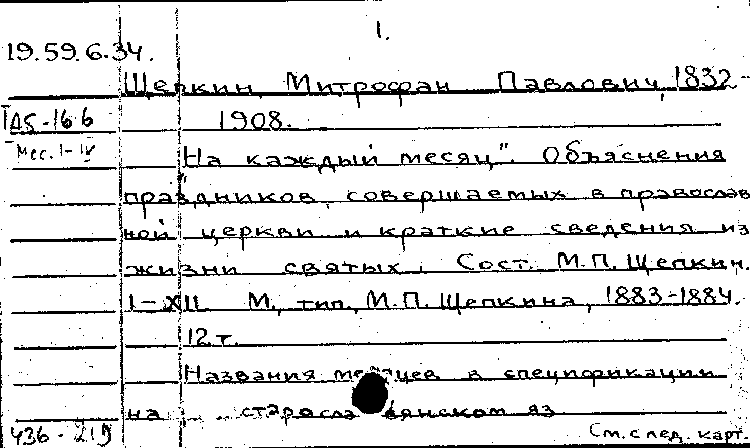 1.
19.59.6.34.
Щепкин, Митрофан Павлович, 1832-
1908.
Д5-16б
Мес. I-IV
"На каждый месяц". Объяснения
праздников, совершаемых в православ
ной церкви и краткие сведения из
жизни святых. Сост. М.П. Щепкин.
I-XII М., тип. М.П. Щепкина, 1883-1884.
12 т.
Названия месяцев в спецификации
на старославянском яз
436-219
См. след. карт.